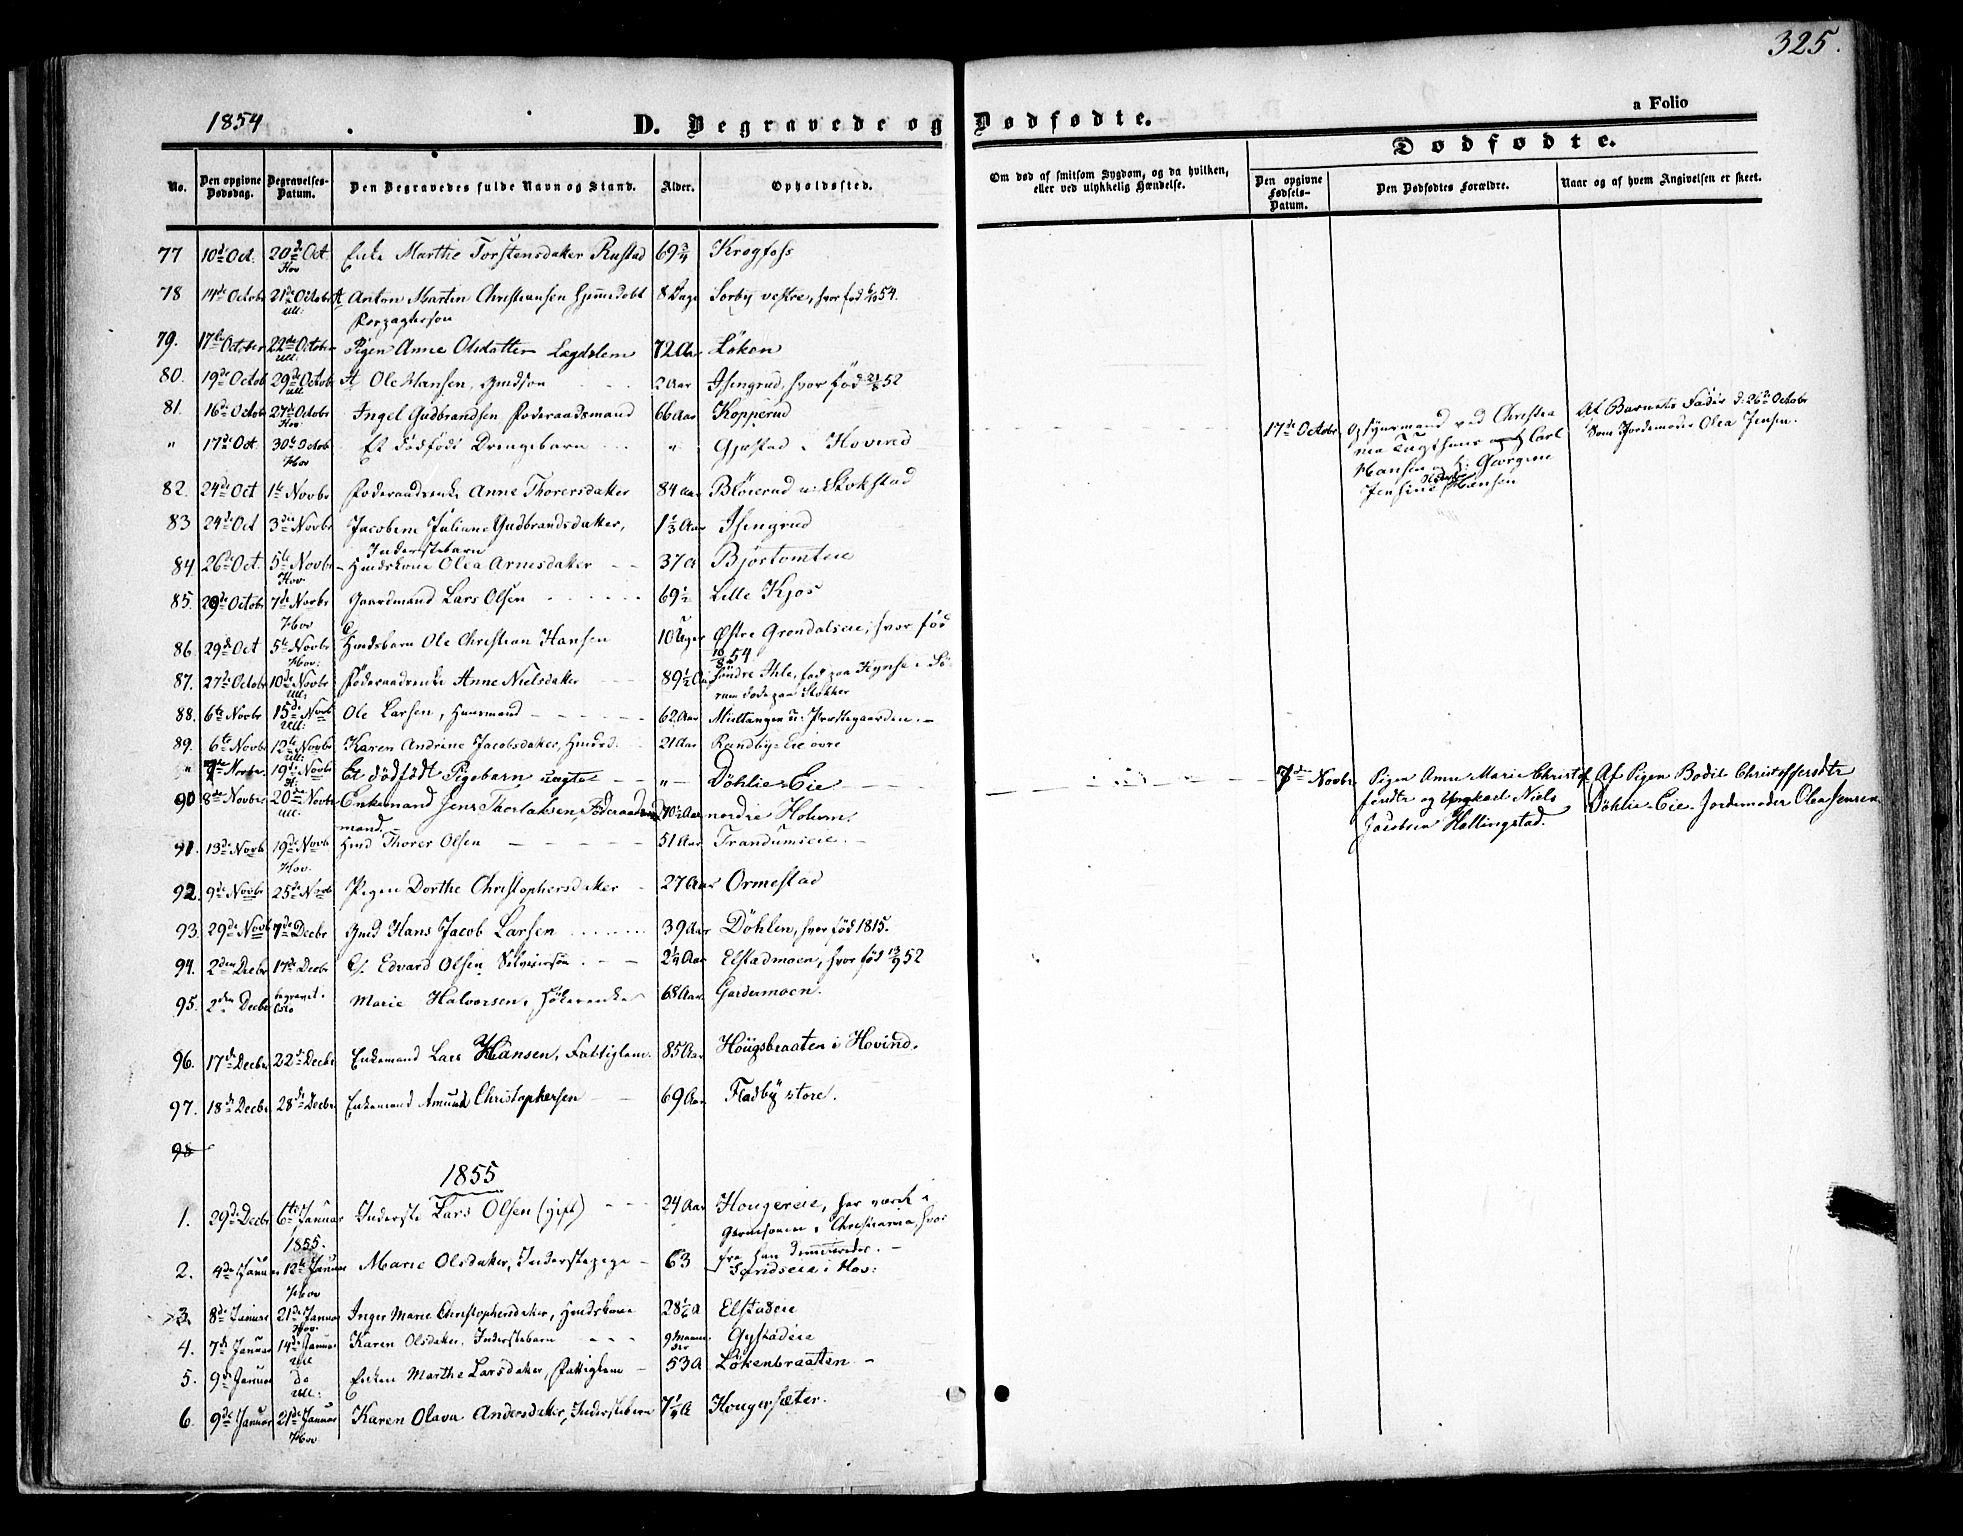 325.
a Folio
1854
D. Begravede og Dødfødte.
Dødfødte.
No.
Den opgivne Dødsdag.
Begravelses-Datum.
Den Begravedes fulde Navn og Stand.
Alder.
Opholdssted.
Om død af smitsom Sygdom, og da hvilken, eller ved ulykkelig Hændelse.
Den opgivne Fødsels-Datum.
Den Dødfødtes Forældre.
Naar og af hvem Angivelsen er skeet.
77 10de Oct. 20de Oct. Hov Enke Marthe Torstensdatter Rustad 69 3/4 Krogfoss
78 14de Octobr 21de Octobr Ull: Anton Martin Christiansen 8 Dage Sørby vestre, hvor fød 6/10 54.
79. 17de October 22de October Ull: Pigen Anne Olsdatter Lægdslem 72 Aar Løken
80. 19de Octob 29de Octob Ull: Ole Hansen, Gmdsøn 2 Aar Isengrud, hvor fød 52
81. 16de Octobr 27de Octobr Hov Ingel Gudbrandsen Føderaadsmand 66 Aar Kopperud
" 17de Oct. 30te Octob Hov Et dødfødt Drengebarn " Gjestad i Hovind
17de Octobr
Af Barnets Fader d: 26de Octobr
Som Jordemoder Olea Jensen.
Hansen og H: Georgine
Jensine Hansen
82. 24de Oct 1te Novbr Føderaadsenke Anne Thorersdatter 84 Aar Bløierud u: Stokstad
83 24de Oct 3die Novbr Jacobine Juliane Gudbrandsdatter, 1 1/3 Aar Isengrud
Inderstebarn
84 26de Oct. 5te Novbr Hov Hmdskone Olea Arnesdatter 37 A Bjørtomteie
85. 29de Octobr 7de Novbr Hov Gaardmand Lars Olsen 69 1/2 Lille Kjos
86. 29de Oct 5te Novbr Hov: Hmdsbarn Ole Christian Hansen 10 Uger Østre Grøndalseie, hvor fød
54
87. 27de Octobr 10de Novbr Ull: Føderaadsenke Anne Nielsdatter 89 1/2 Aar Søndre Ihle, fød paa Hynse i Sø-
rum døde paa Stokker
88. 6te Novbr 15de Novb Ull: Ole Larsen, Huusmand 62 Aar u: Præstegaarden.
89. 6te Novbr 12te Novbr Ull: Karen Andrine Jacobsdatter, Hmdsd. 21 Aar Randby-Eie øvre
" 7de Novbr. 19de Novbr Et dödfödt Pigebarn uægte " Döhlie-Eie
7de Novbr Pigen Anne Marie Christof-
fersdtr og Ungkarl Niels
Jacobsen Hellingstad.
Af Pigen Bodil Christoffersdtr
Döhlie-Eie. Jordemoder Olea Jensen.
90 8de Novbr 20de Novbr Ull. Enkemand Jens Thorlaksen, Föderaads-
mand. 70 1/2 Aar nordre Holum.
91. 13de Novb 19de Novb Hov. Hmd Thorer Olsen 51 Aar Trandumseie.
92. 9de Novbr 25de Novb Pigen Dorthe Christophersdatter 27 Aar Ormestad
93. 29de Novb 7de Decbr Gmd Hans Jacob Larsen 39 Aar Döhlen, hvor fød 1815.
94. 2den Decbr 17de Decbr Edvard Olsen Selveiersøn 2 1/4 Aar Elstadmoen, hvor fød 13/9 52
95. 2den Decbr begravet i Oslo Marie Halvorsen, Høkerenke 68 Aar. Gardermoen.
96. 17de Decbr 22de Decbr Enkemand Lars Hansen, Fattiglem. 85 Aar Höugsbraaten i Hovind.
97. 18de Decbr 28de Decbr Enkemand Amund Christophersen 69 Aar Fladby store.
98
1855
1. 29de Decbr 6te Januar 1855. Inderste Lars Olsen (gift) 24 Aar Hougereie, har været i
Garnisonen i Christiania, hvor
fra han dimitteredes.
2. 4de Januar 12te Januar Hov Marie Olsdatter, Inderstepige 63 i Hov:
3. 8de Januar 21de Januar Hov. Inger Marie Christophersdatter, Hmdskone 28 1/2 A Elstadeie
4. 7de Januar 14de Januar Ull Karen Olsdatter, Inderstebarn 9 Maane-
der Gystadeie
5. 9de Januar do Ull: Enken Marthe Larsdatter, Fattiglem 53 A Løkenbraatten
6. 9de Januar 21de Januar Hov Karen Olava Andersdatter, Inderstebarn 7 1/4 A Hougersæter.